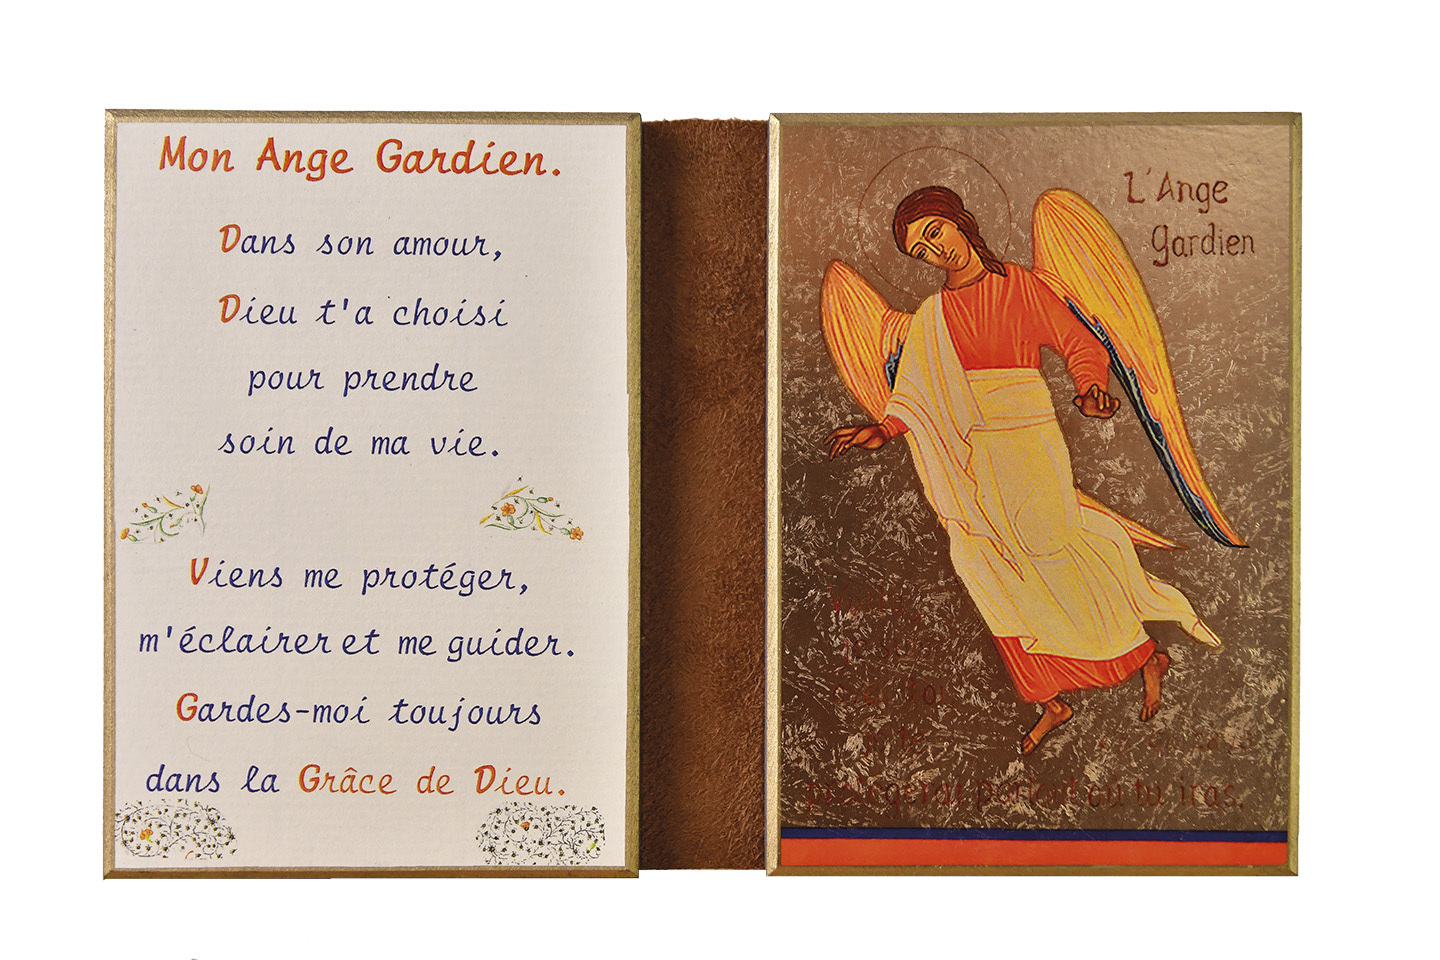 Mon Ange Gardien.
Dans son amour,
Dieu t'a choisi
pour prendre
soin de ma vie.
Viens me protéger,
m'éclairer et me guider.
Gardes-moi toujours
dans la Grâce de Dieu.
L'Ange
Gardien
partout où tu iras.